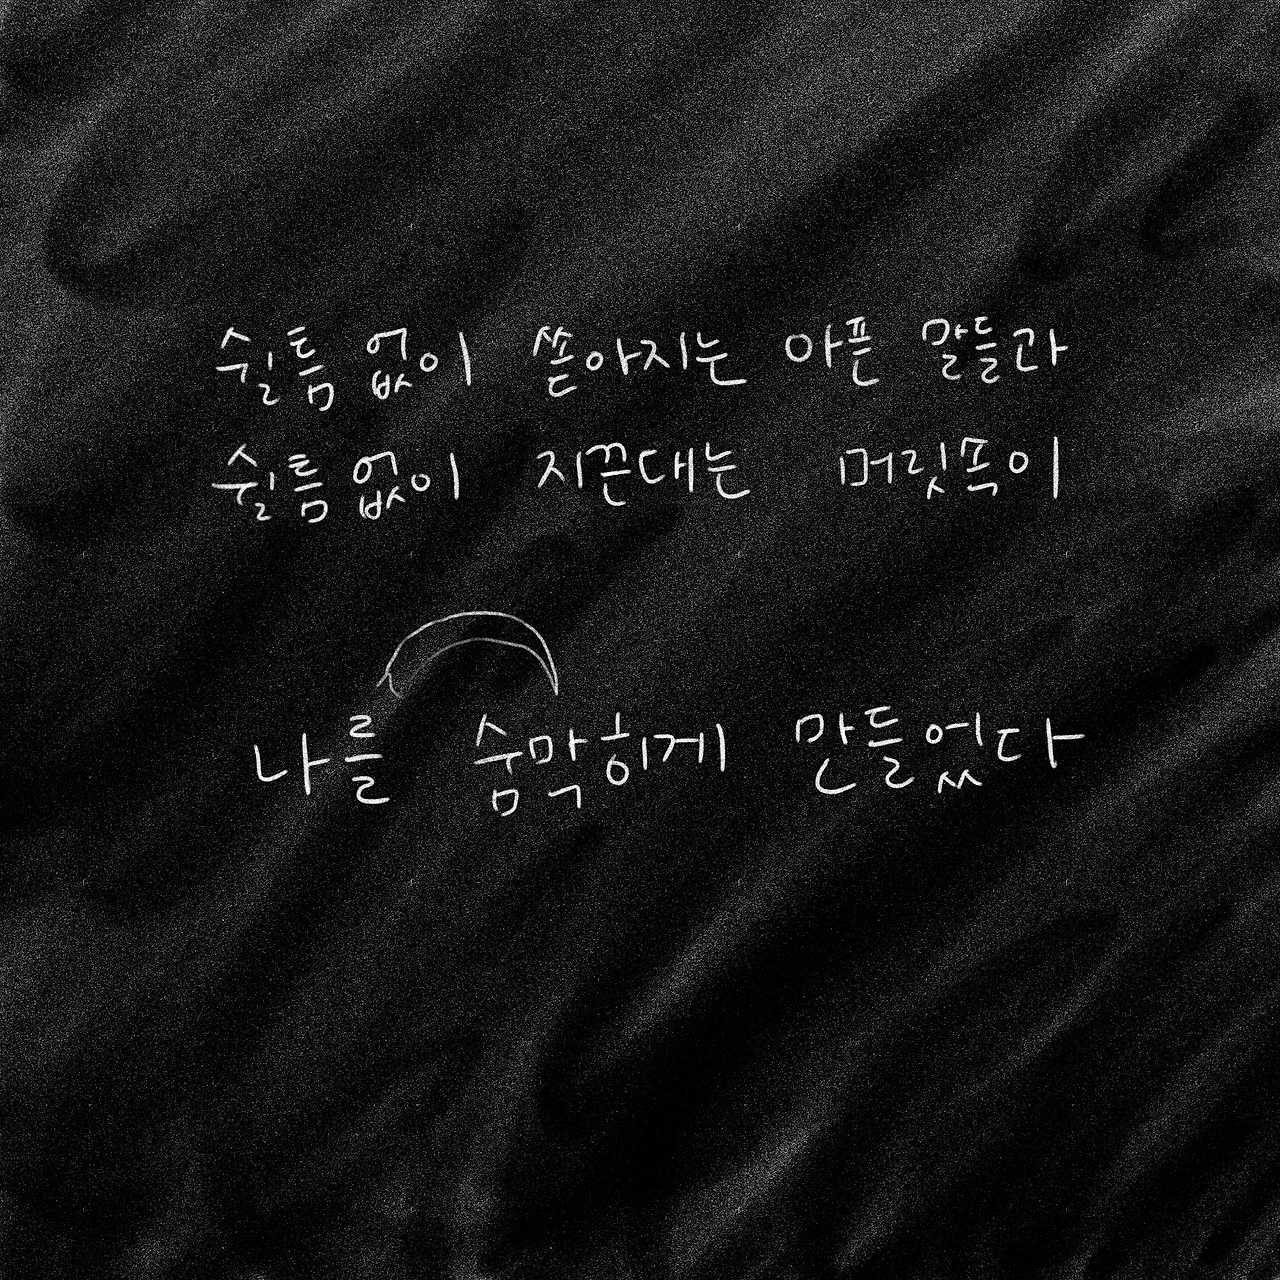 쉴틈 없이 쏟아지는 아픈 말들과
쉴틈 없이 지끈대는 머릿쪽이
나를 숨막히게 만들었다